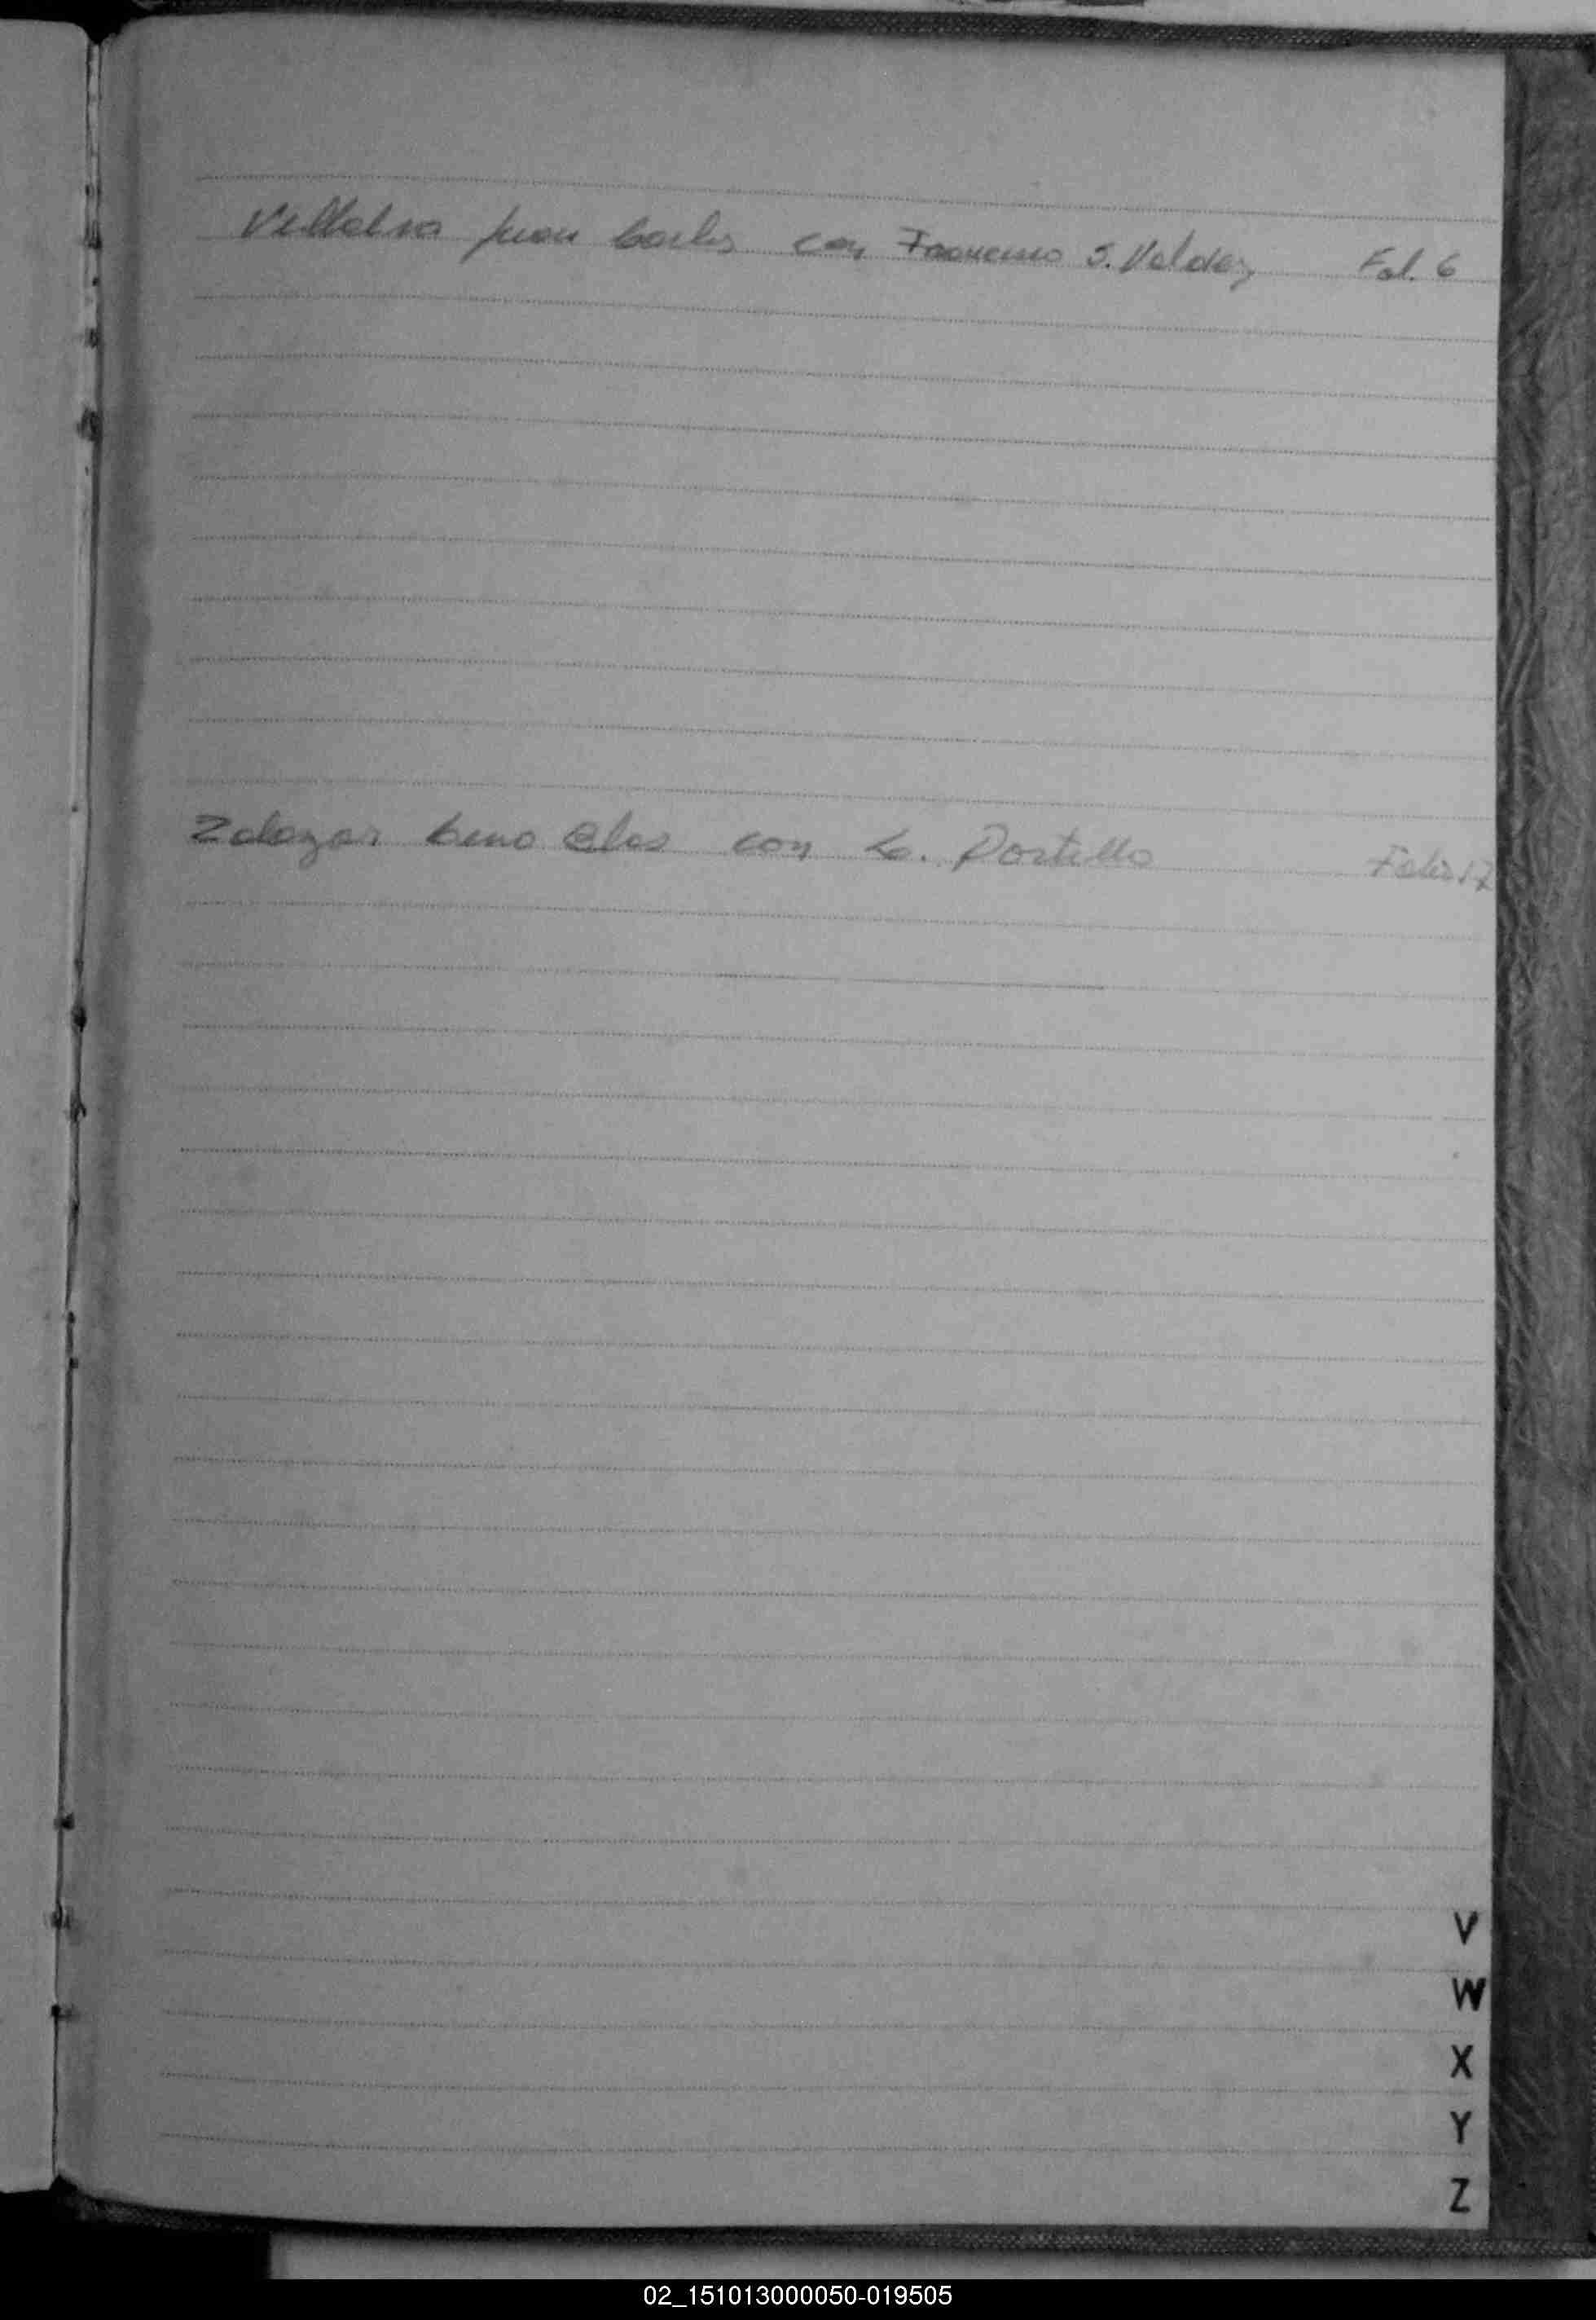 Villalva Juan Carlos con S. Valdez Fol. 6
Zalazar Blas con Portillo Folio 17
V
W
X
Y
Z
02_151013000050-019505